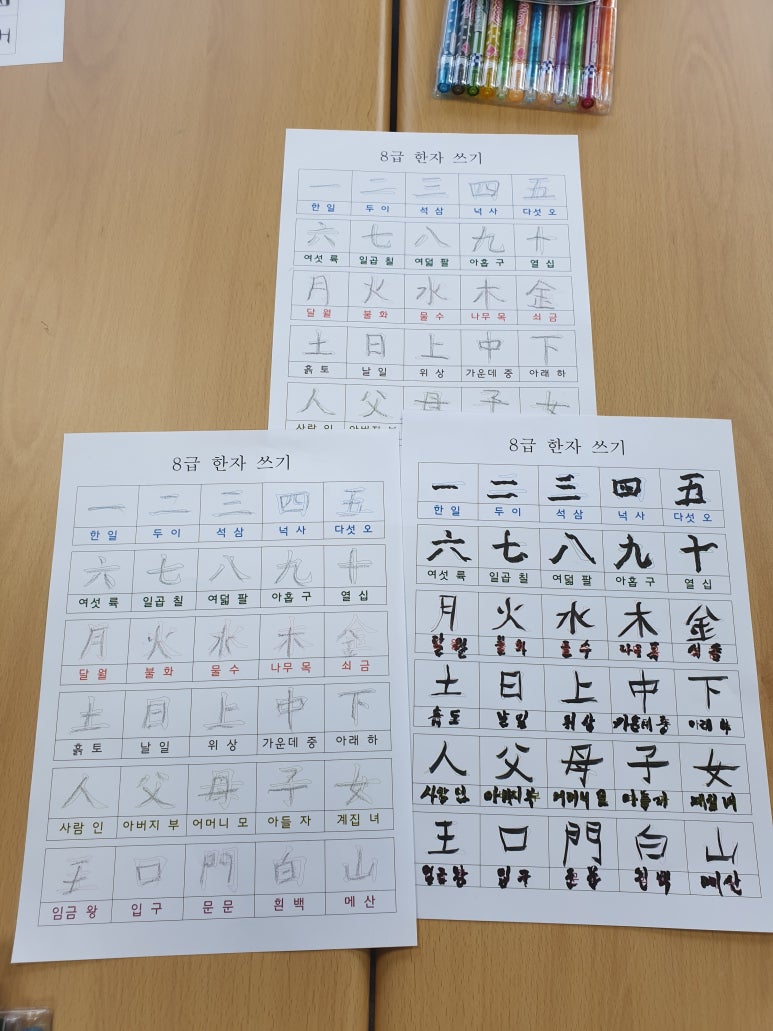 8급 한자 쓰기
一 二 三 四 五
한 일 두 이 석 삼 넉 사 다섯 오
六 七 八 九 十
여섯 륙 일곱 칠 여덟 팔 아홉 구 열 십
月 火 水 木 金
달 월 불 화 물 수 나무 목 쇠 금
土 日 上 中 下
흙 토 날 일 위 상 가운데 중 아래 하
人 父 母 子 女
사람 인 아버지 부
8급 한자 쓰기
一 二 三 四 五
한 일 두 이 석 삼 넉 사 다섯 오
六 七 八 九 十
여섯 륙 일곱 칠 여덟 팔 아홉 구 열 십
月 火 水 木 金
달 월 불 화 물 수 나무 목 쇠 금
土 日 上 中 下
흙 토 날 일 위 상 가운데 중 아래 하
人 父 母 子 女
사람 인 아버지 부 어머니 모 아들 자 계집 녀
王 口 門 白 山
임금 왕 입 구 문 문 흰 백 메 산
8급 한자 쓰기
一 二 三 四 五
한 일 두 이 석 삼 넉 사 다섯 오
六 七 八 九 十
여섯 륙 일곱 칠 여덟 팔 아홉 구 열 십
月 火 水 木 金
달 월 불 화 물 수 나무 목
土 日 上 中 下
날 일 위 상 가운데 중 아래 하
人 父 母 子 女
사람 인 아버지 부 어머니 모 아들 자
王 口 門 白 山
임금 왕 입 구 흰 백 메 산